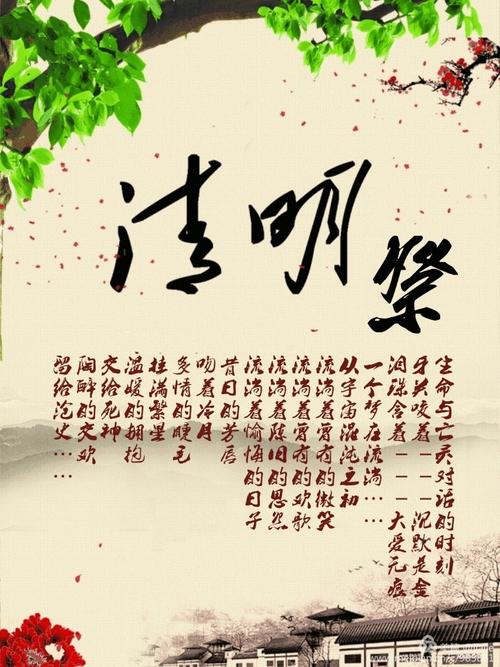 清明
祭
生命与亡灵对话的时刻
牙关咬着——沉默是金
泪珠含着——大爱无痕
一个梦在流淌……
从宇宙混沌之初
流淌着有的微笑
流淌着有的欢歌
流淌着陈旧的思念
流淌着愉悔的日子
昔日的芳唇
吻着冷月
多情的睫毛
挂满繁星
温暖的拥抱
交给死神
陶醉的交欢
留给史……